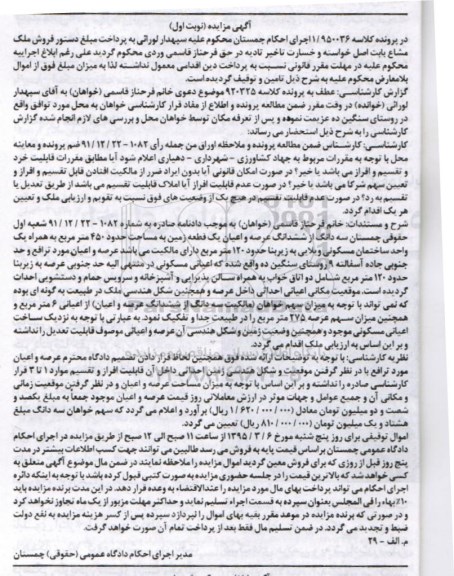 آگهی مزایده (نوبت اول)
در پرونده کلاسه ۱/۹۵۰۰۳۶ اجرای احکام چمستان محکوم علیه سپهدار لورائی به پرداخت مبلغ دستور فروش ملک
مشاع بابت اصل خواسته و خسارت تاخیر تادیه در حق فرحناز قاسمی وردی محکوم گردید علی رغم ابلاغ اجراییه
محکوم علیه در مهلت مقرر قانونی نسبت به پرداخت دین اقدامی معمول نداشته لذا به میزان مبلغ فوق از اموال
بلامعارض محکوم علیه به شرح ذیل تامین و توقیف گردیده است.
گزارش کارشناسی: عطف به پرونده کلاسه ۹۲۰۳۲۵ موضوع دعوی خانم فرحناز قاسمی (خواهان) به آقای سپهدار
لورائی (خوانده) در وقت مقرر ضمن مطالعه پرونده و اطلاع از مفاد قرار کارشناسی خواهان به محل مورد توافق واقع
در روستای سنگین ده عزیمت نموده و پس از تعرفه مکان توسط خواهان محل و بررسی های لازم انجام شده گزارش
کارشناسی را به شرح ذیل استحضار می رساند:
کارشناسی: کارشناس ضمن مطالعه پرونده و ملاحظه اوراق من جمله رأی ۱۰۸۲ - ۹۱/۱۲/۲۲ ضم پرونده و معاینه
محل با توجه به مقررات مربوط به جهاد کشاورزی - شهرداری - دهیاری اعلام شود آیا مطابق مقررات قابلیت خرد
و تقسیم و افراز می باشد یا خیر؟ در صورت امکان قانونی آیا بدون ایراد ضرر از مالکیت افتادن قابل تقسیم و افراز و
تعیین سهم شرکا می باشد یا خیر؟ در صورت عدم قابلیت افراز آیا املاک قابلیت تقسیم می باشد از طریق تعدیل یا
تقسیم به رد؟ در صورت عدم قابلیت تقسیم در هیچ یک از وضعیت های فوق نسبت به تقویم و ارزیابی ملک و تعیین
هر یک اقدام گردد.
شرح و مستندات: خانم فرحناز قاسمی (خواهان) به موجب دادنامه صادره به شماره ۱۰۸۲ - ۹۱/۱۲/۲۲ شعبه اول
حقوقی چمستان سه دانگ از ششدانگ عرصه و اعیان یک قطعه زمین به مساحت حدود ۴۵۰ متر مربع به همراه یک
واحد ساختمان مسکونی ویلایی به زیربنا حدود ۱۲۰ متر مربع دارای مالکیت می باشد عرصه و اعیان مورد ترافع و حد
جنوبی جاده آسفالته روستای سنگین ده واقع شده که اعیانی مسکونی در منتهی الیه حد جنوبی عرصه به زیربنا
حدود ۱۲۰ متر مربع شامل دو اتاق خواب به همراه سالن پذیرایی و آشپزخانه و سرویس حمام و دستشویی احداث
گردیده است. موقعیت مکانی اعیانی احداثی داخل عرصه و همچنین شکل هندسی ملک در طبیعت به گونه ای بوده
که نمی تواند با توجه به میزان سهم خواهان (مالکیت سه دانگ از ششدانگ عرصه و اعیان) از اعیانی ۶ متر مربع و
همچنین میزان سهم عرصه ۲۷۵ متر مربع را در طبیعت جدا و تفکیک نمود. به عبارتی با توجه به نزدیک ساخت
اعیانی مسکونی موجود و همچنین وضعیت زمین و شکل هندسی آن عرصه و اعیانی موصوف قابلیت تعدیل را نداشته
و بر این اساس به ارزیابی ملک اقدام می گردد.
نظریه کارشناسی: با توجه به توضیحات ارائه شده فوق همچنین لحاظ قرار دادن تصمیم دادگاه محترم عرصه و اعیان
مورد ترافع با در نظر گرفتن موقعیت و شکل هندسی زمین احداثی داخل آن قابلیت افراز و تقسیم موارد ۱ تا ۳ قرار
کارشناسی صادره را نداشته و بر این اساس با توجه به میزان مساحت عرصه و اعیان و در نظر گرفتن موقعیت زمانی
و مکانی آن و جمیع عوامل و جهات موثر در ارزش معاملاتی روز قیمت عرصه و اعیان موجود جمعاً به مبلغ یکصد و
شصت و دو میلیون تومان معادل (۱/۶۲۰/۰۰۰/۰۰۰ ریال) برآورد و اعلام می گردد که سهم خواهان سه دانگ مبلغ
هشتاد و یک میلیون تومان (۸۱۰/۰۰۰/۰۰۰ ریال) تعیین می گردد.
اموال توقیفی برای روز پنج شنبه مورخ ۱۳۹۵/۳/۶ از ساعت ۱۱ صبح الی ۱۲ صبح از طریق مزایده در اجرای احکام
دادگاه عمومی چمستان براساس قیمت پایه به فروش می رسد طالبین می توانند جهت کسب اطلاعات بیشتر در مدت
پنج روز قبل از روزی که برای فروش معین گردید اموال مزایده را ملاحظه نمایند در ضمن مال موضوع آگهی متعلق به
کسی خواهد شد که بالاترین قیمت را در جلسه حضوری مزایده به صورت کتبی قبول کرده باشد با توجه به اینکه دائره
اجرای احکام می تواند پرداخت بهای مال مورد مزایده را عندالاقتضاء به وعده قرار دهد. در این مدت برنده مزایده باید
۱۰٪ بهاء را فی المجلس بعنوان سپرده به قسمت اجراء تسلیم نماید و حداکثر مهلت مزبور از یک ماه تجاوز نخواهد کرد
و در صورتی که برنده مزایده در موعد مقرر بقیه بهای اموال را نپردازد سپرده پس از کسر هزینه مزایده به نفع دولت
ضبط و تجدید می گردد. در ضمن تسلیم مال فقط بعد از پرداخت تمام آن صورت خواهد گرفت.
م. الف - ۲۹
مدیر اجرای احکام دادگاه عمومی (حقوقی) چمستان